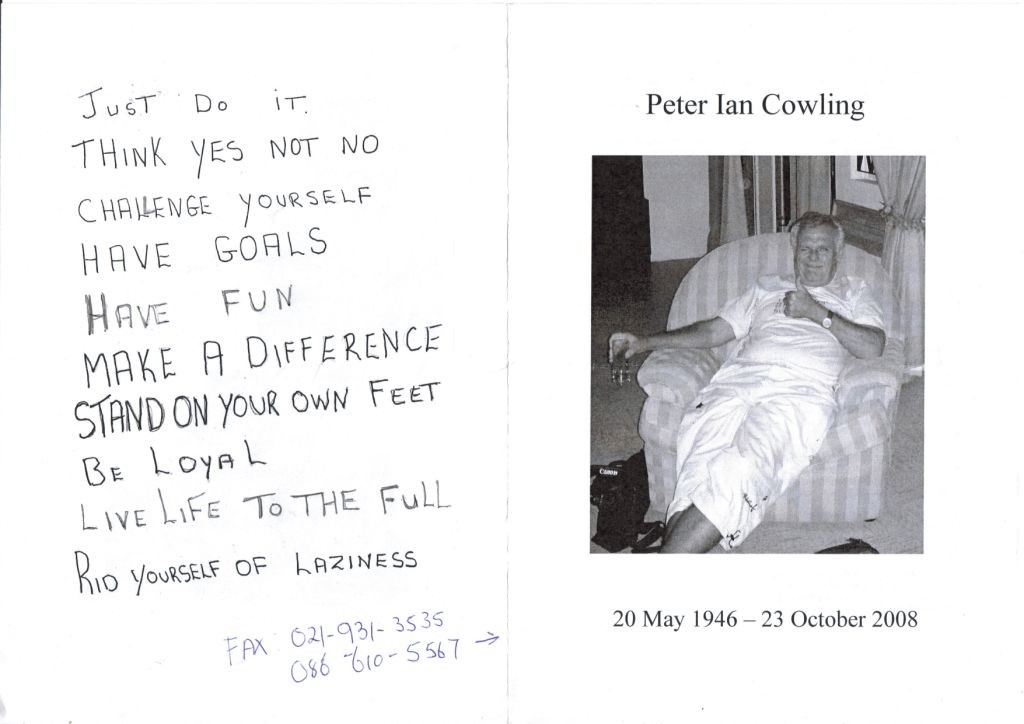 JUST DO IT.
THINK YES NOT NO
CHALLENGE YOURSELF
HAVE GOALS
HAVE FUN
MAKE A DIFFERENCE
STAND ON YOUR OWN FEET
BE LOYAL
LIVE LIFE TO THE FULL
RID YOURSELF OF LAZINESS
FAX 021-931-3535
086 610-5567 →
Peter Ian Cowling
CANON
20 May 1946 – 23 October 2008